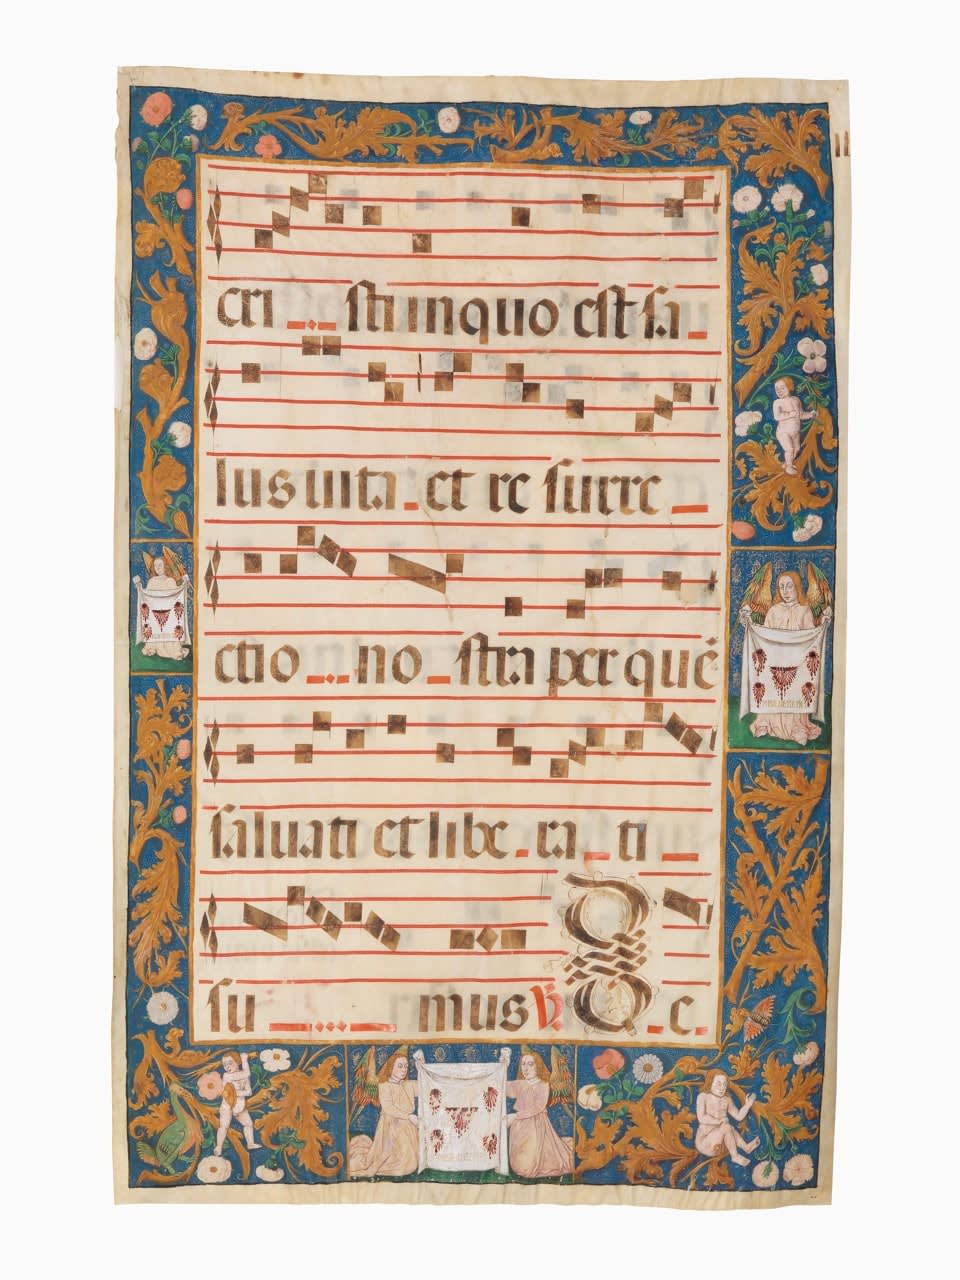 cri sti in quo est sa
lus uita et re surre
ctio no stra per quē
saluati et libe ra ti
su mus ℣. c.